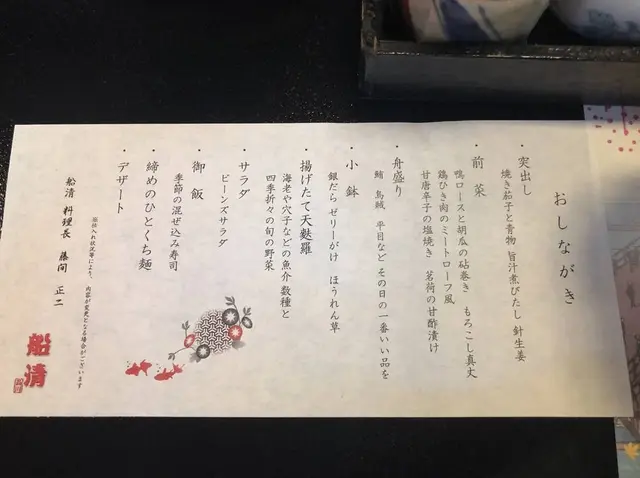 おしながき
・突出し
焼き茄子と青物 旨汁煮びたし 針生姜
・前菜
鴨ロースと胡瓜の砧巻き もろこし真丈
鶏ひき肉のミートローフ風
甘唐辛子の塩焼き 茗荷の甘酢漬け
・舟盛り
鮪 烏賊 平目など その日の一番いい品を
・小鉢
銀だら ゼリーがけ ほうれん草
・揚げたて天麩羅
海老や穴子などの魚介 数種と
四季折々の旬の野菜
・サラダ
ビーンズサラダ
・御飯
季節の混ぜ込み寿司
・締めのひとくち麺
・デザート
※仕入れ状況等により、内容が変更となる場合がございます
船清 料理長 藤間 正二
船清